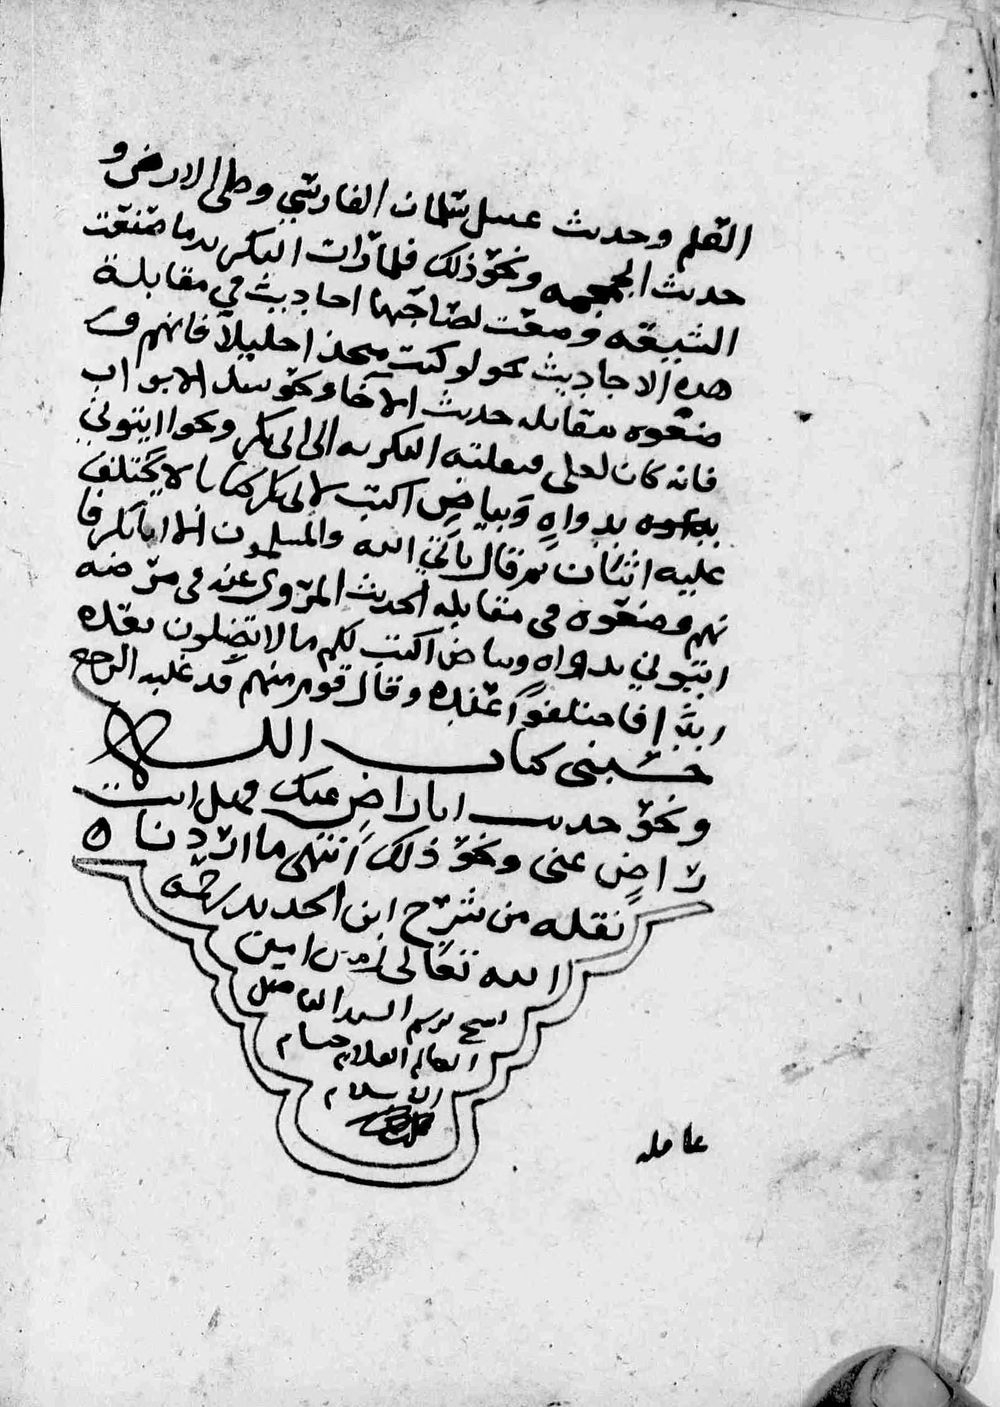 القلم وحديث غسل سلمان الفارسي وطي الارض و
حديث الجمجمه ونحو ذلك فلما رات البكريه ما صنعت
الشيعه وضعت لصاحبها احاديث في مقابلة
هذه الاحاديث نحو لو كنت متخذا خليلاً فانهم و
ضعوه بمقابله حديث الاخا ونحو سد الابواب
فانه كان لعلي فقلبته البكريه الى ابي بكر ونحو ايتوني
بدواهٍ وبياضٍ اكتب لابي بكر كتابا لا يختلف
عليه اثنان ثم قال يأبى الله والمسلمون الا ابا بكر فا
نهم وضعوه في مقابله الحديث المروي عنه في مرضه
ايتوني بدواه وبياض اكتب لكم ما لا تضلون بعده
ابدًا فاختلفوا عنده وقال قوم منهم قد غلبه الوجع
حسبنى كتاب الله
ونحو حديث انا راضٍ عنك فهل انت
راضٍ عني ونحو ذلك انتهى ما اردنا
نقله من شرح ابن الحديد رحمه
الله تعالى امين امين
برسم السيد الفاضل
العالم العلامه حسام
الاسلام
عامله